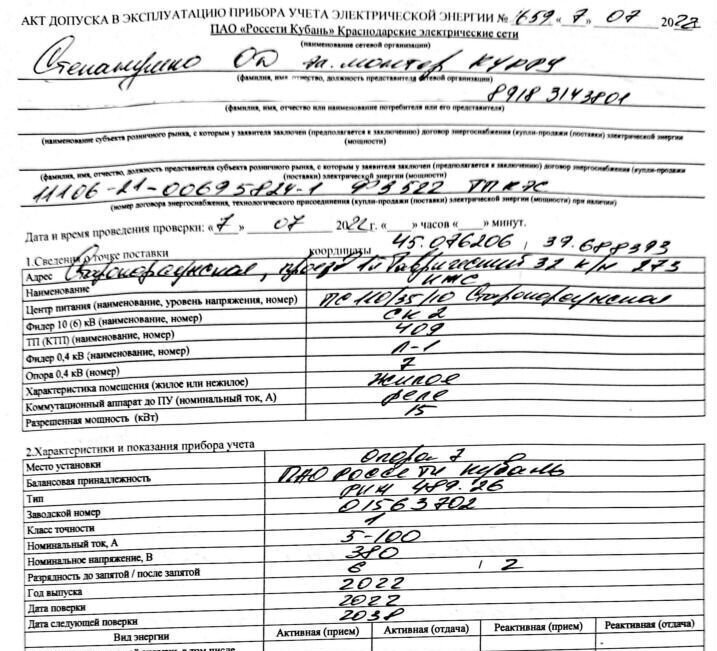 АКТ ДОПУСКА В ЭКСПЛУАТАЦИЮ ПРИБОРА УЧЕТА ЭЛЕКТРИЧЕСКОЙ ЭНЕРГИИ № 659 «7» 07 2022
ПАО «Россети Кубань» Краснодарские электрические сети
(наименование сетевой организации)
эл. монтер
(фамилия, имя отчество, должность представителя сетевой организации)
8918 3143801
(фамилия, имя, отчество или наименование потребителя или его представителя)
(наименование субъекта розничного рынка, с которым у заявителя заключен (предполагается к заключению) договор энергоснабжения (купли-продажи (поставки) электрической энергии
(мощности)
(фамилия, имя, отчество, должность представителя субъекта розничного рынка, с которым у заявителя заключен (предполагается к заключению) договор энергоснабжения (купли-продажи
(поставки) электрической энергии (мощности)
11106-21-00695824-1 ТП КЭС
(номер договора энергоснабжения, технологического присоединения (купли-продажи (поставки) электрической энергии (мощности) при наличии)
Дата и время проведения проверки: «7» 07 2022 г. «___» часов «___» минут.
1.Сведения о точке поставки координаты 45.076206, 39.688393
Адрес Старокорсунская, проезд 1й Таврический 32 к/н 273
Наименование ИЖС
Центр питания (наименование, уровень напряжения, номер) ПС 110/35/10 Старокорсунская
Фидер 10 (6) кВ (наименование, номер) СК 2
ТП (КТП) (наименование, номер) 409
Фидер 0,4 кВ (наименование, номер) Л-1
Опора 0,4 кВ (номер) 7
Характеристика помещения (жилое или нежилое) жилое
Коммутационный аппарат до ПУ (номинальный ток, А) реле
Разрешенная мощность (кВт) 15
2.Характеристики и показания прибора учета
Место установки Опора 7
Балансовая принадлежность ПАО РОССЕТИ Кубань
Тип РиМ 489.26
Заводской номер 01563702
Класс точности 1
Номинальный ток, А 5-100
Номинальное напряжение, В 380
Разрядность до запятой / после запятой 6 , 2
Год выпуска 2022
Дата поверки 2022
Дата следующей поверки 2038
Вид энергии Активная (прием) Активная (отдача) Реактивная (прием) Реактивная (отдача)